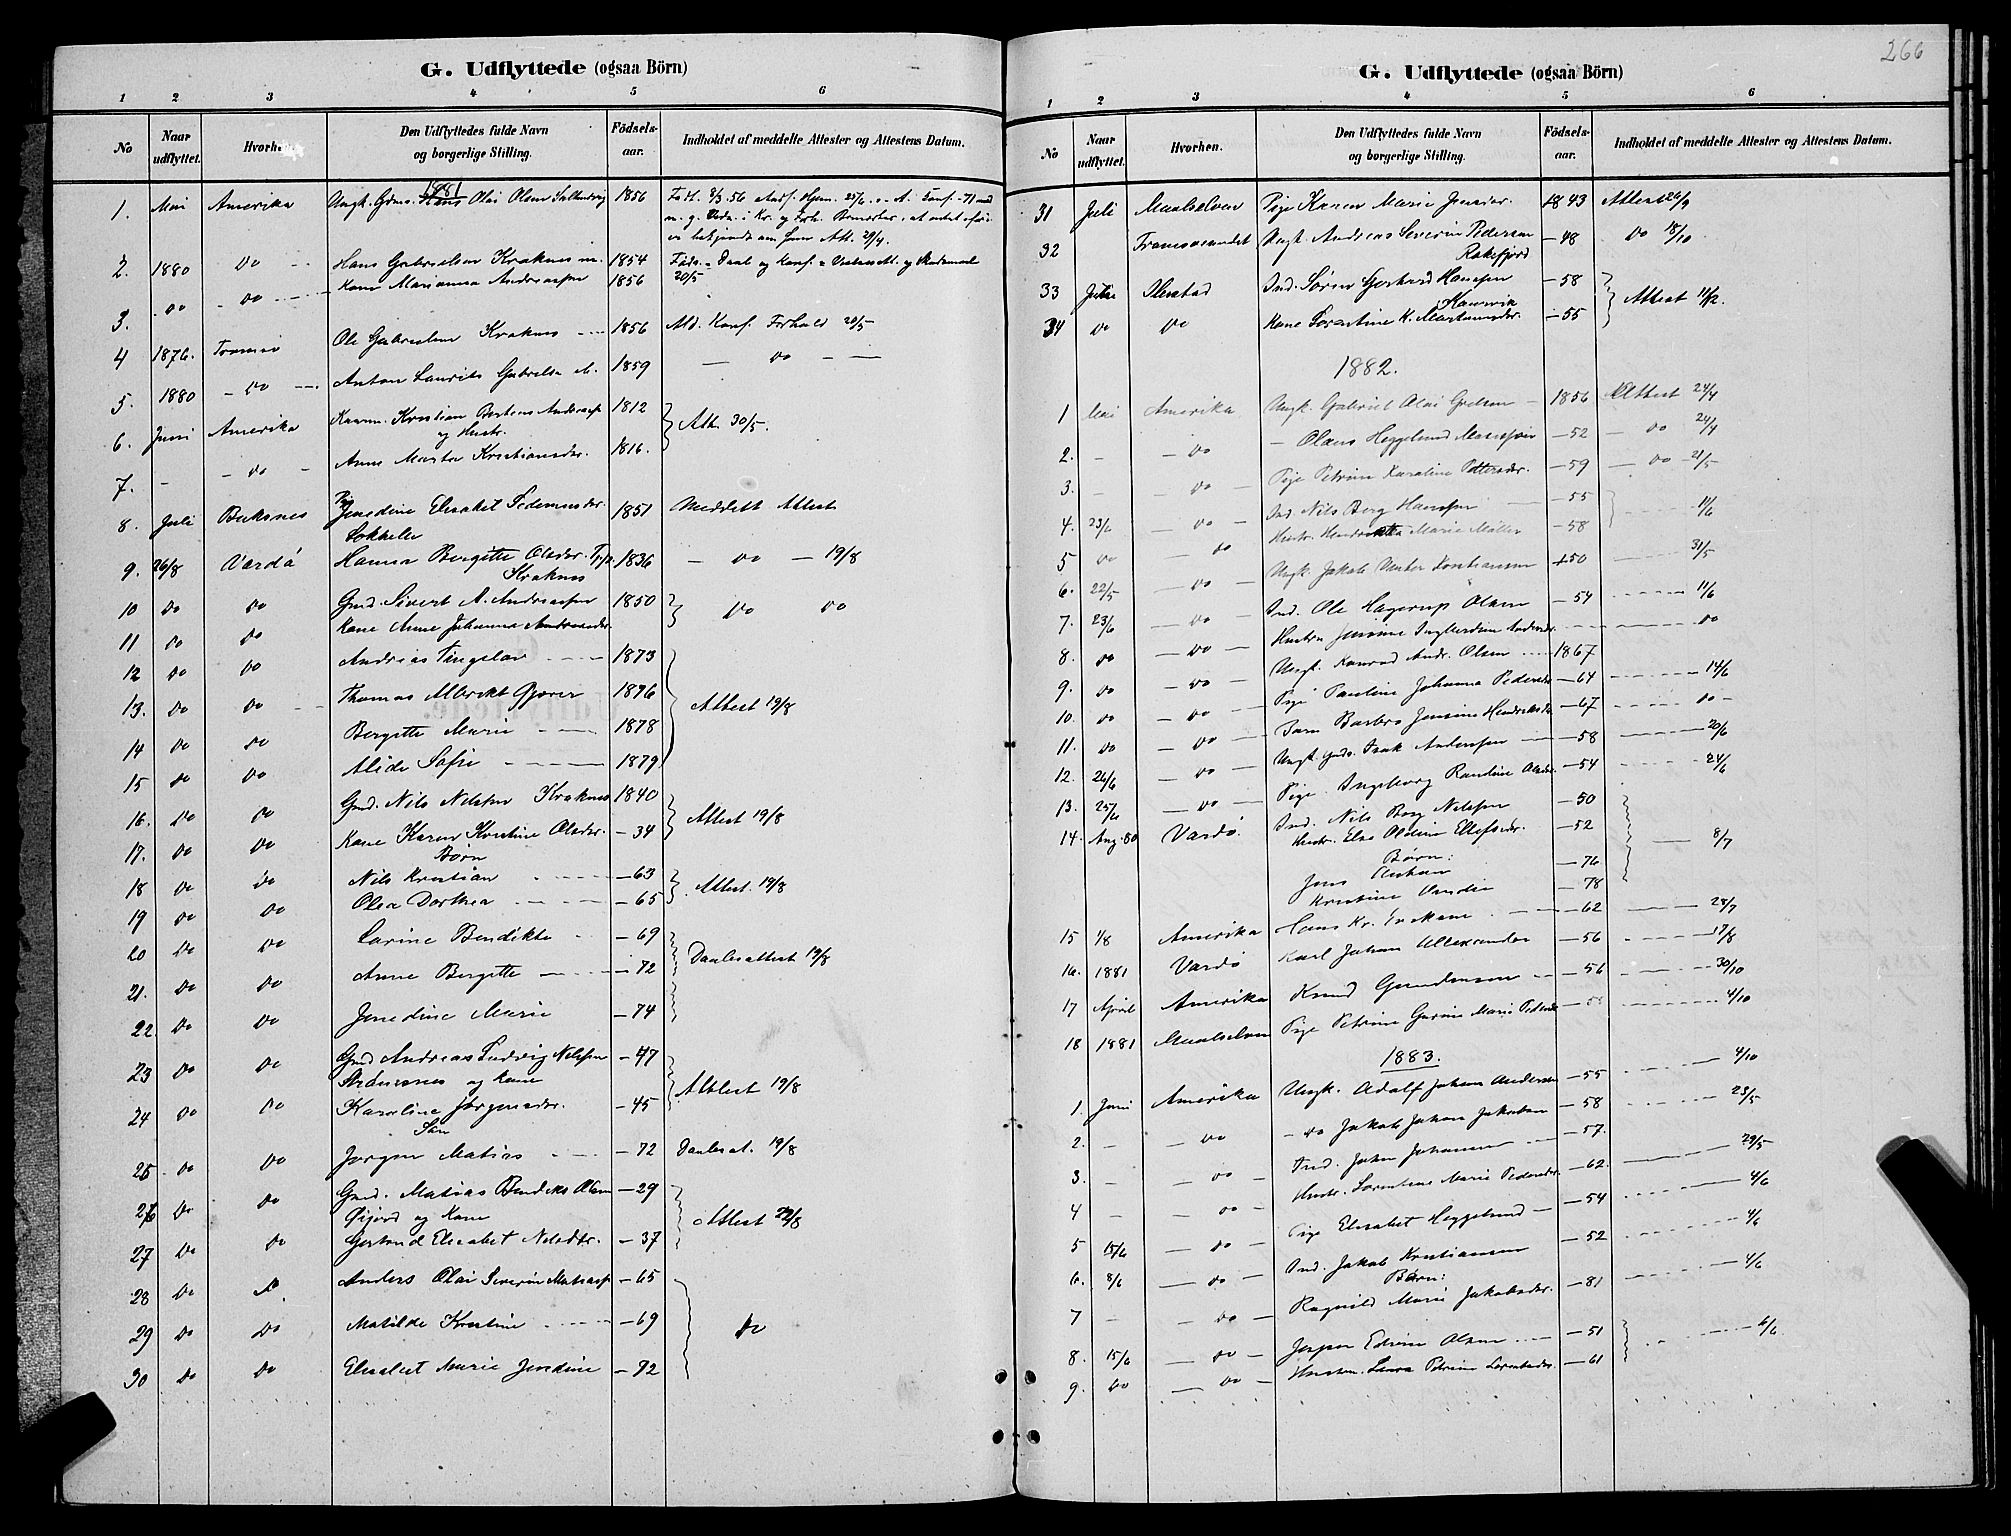 G. Udflyttede (ogsaa Börn)
1 2 3 4 5 6
No
Naar udflyttet.
Hvorhen
Den Udflyttedes fulde Navn og borgerlige Stilling.
Födsels-aar.
Indholdet af meddelte Attester og Attestens Datum.
1881
1. Mai Amerika Ungk. Hans Olai Olsen 1856
2. 1880 Do Hans Gabrielsen Kraknes 1854
3. Do Do Kone Marianna Andreassen 1856 20/5
4 1876. Tromsø Ole Gabrielsen Kraknes 1856 Ald. Konf. Forhold 20/5
5. 1880 Do Anton Laurits Gabrielsen 1859 Do
6. Juni Amerika Kristian Andreassen 1812 Att. 30/5.
og Hustr.
7. - Do Anne Marta Kristiansdr. 1816.
8. Juli Buksnes Pige Jenedine Elisabet Pedersdr. 1851 Meddelt Attest
9. 26/8 Vardö Hanna Bergitte Olsdr. 1836 Do 19/8
Kraknes
10 Do Do Gmd. Sivert A. Andreassen 1850 Do Do
11 Do Do Kone Anne Johanna Andreasdr.
12 Do Do Andreas Tingelar 1873
13. Do Do Thomas Albrekt Gjøver 1876 Attest 19/8
14 Do Do Bergitte Marie 1878
15 Do Do Alide Sofie 1879
16. Do Do Gmd. Nils Nilssen Kraknes 1840 Attest 19/8
17. Do Do Kone Karen Kristine Olsdr. - 34
Børn
18 Do Do Nils Kristian - 63 Attest. 19/8
19 Do Do Olea Dorthea - 65
20 Do Do Sarine Bendikte - 69 Daabsattest 19/8
21. Do Do Anne Bergitte - 72
22 Do Do Jenedine Marie - 74
23 Do Do Gmd Andreas Ludvig Nilssen - 47
og Kone
24 Do Do Karoline Jørgensdr. - 45 Attest 19/8
Søn
25 Do Do Jørgen Matias - 72 Daabsat. 19/8
26 Do Do Gmd. Matias Bendiks Olsen - 29
og Kone
27 Do Do Gertrud Elisabet Nilsdtr. - 37 Attest 22/8
28 Do Do Anders Olai Severin Matiass - 65
29 Do Do Matilde Kristine - 69 Do
30 Do Do Elisabet Marie Jendine - 72
266
G. Udflyttede (ogsaa Börn)
1 2 3 4 5 6
No
Naar udflyttet.
Hvorhen.
Den Udflyttedes fulde Navn og borgerlige Stilling.
Födsels-aar.
Indholdet af meddelte Attester og Attestens Datum.
31 Juli Maalselven Pige Karen Marie Jensdr. 1843 Attest 26/9
32 Tromsøsundet Ungk. Andreas Severin Pedersen - 48 Do 18/10
Rakfjord
33 Ibestad Ind. Søren Gerhard Hanssen - 58
34 Do Do Kone Sorentine K. Mortensdr. - 55 Attest 11/12
1882.
1 Mai Amerika Ungk. Gabriel Olai 1856 Attest 24/4
2. - Do - Olaus Heggelund Hanssen - 52 Do 24/4
3. - Do Pige Petrine Karoline Pettersdr. - 59 Do 21/5
4. 23/6 Do Ind Nils Berg Hanssen - 55 11/6
5 Do Do Hustr. Hendrikka Marie Møller - 58
6. 22/5 Do Ungk. Jakob Kristiansen - 50 31/5
7. 23/6 Do Ind. Ole Hagerup Olsen - 54 11/6
8. Do Do Hustru Do
9. Do Do Ungk. Konrad Andr. Olsen 1867
10. Do Do Pige Pauline Johanna Pedersdr - 64 14/6
11. Do Do Barn Barbro Jensine Hendriksdr - 67 Do
12. 26/6 Do Ungk. Isak Anderssen - 58 20/6
13. 25/6 Do Pige Ingeborg Randine Olsdr. - 54 24/6
14. Aug. 80 Vardö. Ind. Nils Berg Nilssen - 50
Hustr. Else Oldine Ellefsdr. - 52 8/7
Børn:
Jens - 76
Kristine - 78
15 1/8 Amerika Hans Kr. - 62 28/7
16. 1881 Vardö Karl Johan Allexander - 56
17 April Amerika Knud Gundersen - 56 30/10
18 1881 Maalselven Pige Petrine Gurine Marie 4/10
1883.
1. Juni Amerika Ungk. Adolf Johan Andersen - 55 4/10
2. - Do - Do Jakob Johan Jakobsen - 58 23/5
3. - Do Ind. John Johansen - 57.
4 - Do Hustr. Sorentine Marie Pedersdr. - 62. 29/5
5 15/6 Do Pige Elisabet Heggelund - 54 4/6
6. 8/6 Do Ind. Jakob Kristiansen - 52 4/6
Børn:
7 - Do Ragnild Marie Jakobsdr. - 81 4/6
8. 15/6 Do Jesper Edvin Olsen - 51 6/6.
9. Do Do Hustru. Petrine - 61